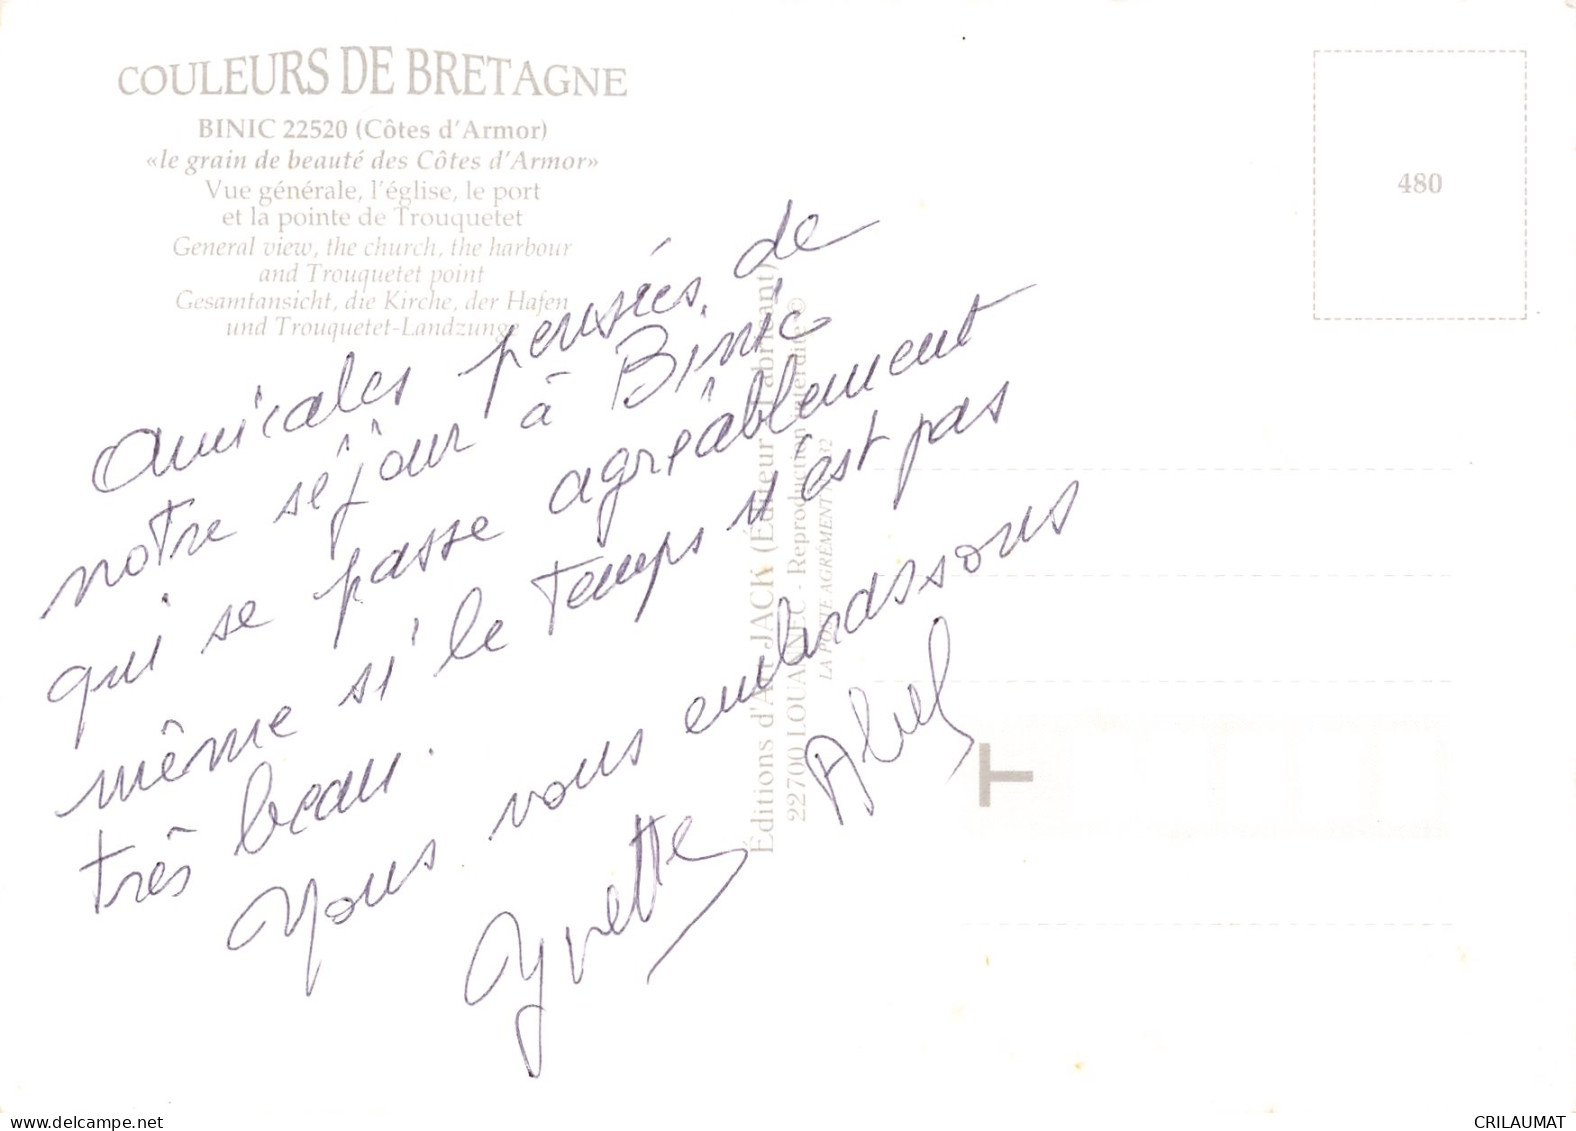 COULEURS DE BRETAGNE
BINIC 22520 (Côtes d'Armor)
«le grain de beauté des Côtes d'Armor»
Vue générale, l'église, le port
et la pointe de Trouquetet
General view, the church, the harbour
and Trouquetet point
Gesamtansicht, die Kirche, der Hafen
und Trouquetet-Landzunge
Amicales pensées de
notre séjour à Binic
qui se passe agréablement
même si le temps n'est pas
très beau.
Nous vous embrassons
Yvette Abel
Éditions d'Art JACK (Éditeur Fabricant)
22700 LOUANNEC - Reproduction interdite ©
LA POSTE AGRÉMENT
480
T
www.delcampe.net
CRILAUMAT